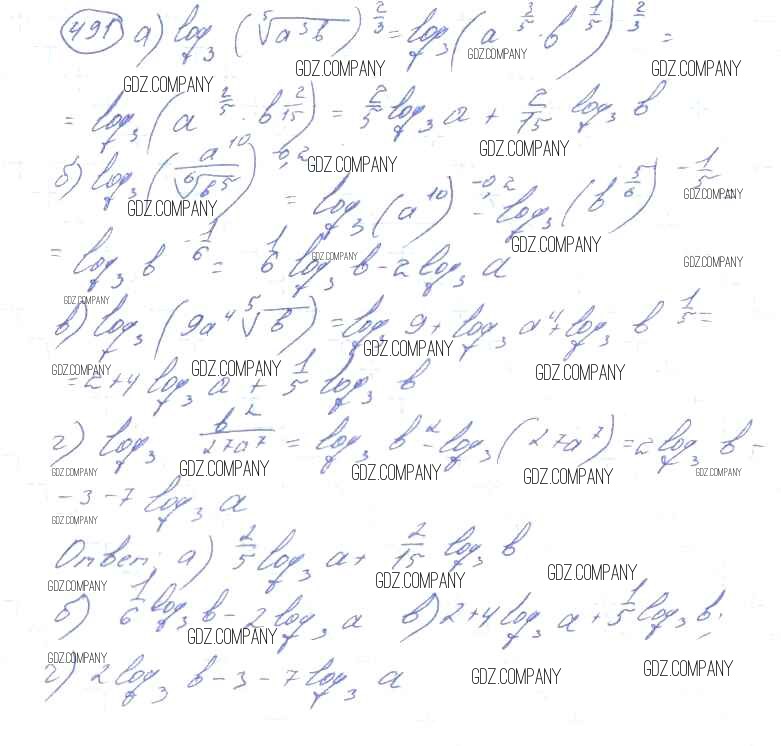 491 а) log₃ (⁵√a³b)^(2/3) = log₃ (a^(3/5) · b^(1/5))^(2/3) =
GDZ.COMPANY GDZ.COMPANY GDZ.COMPANY GDZ.COMPANY
= log₃ (a^(2/5) · b^(2/15)) = 2/5 log₃ a + 2/15 log₃ b
GDZ.COMPANY GDZ.COMPANY
б) log₃ (a¹⁰/⁶√b⁵)^(-0,2) = log₃ (a¹⁰)^(-0,2) - log₃ (b^(5/6))^(-1/5) =
GDZ.COMPANY GDZ.COMPANY GDZ.COMPANY
= log₃ b^(-1/6) = 1/6 log₃ b - 2 log₃ a
GDZ.COMPANY GDZ.COMPANY GDZ.COMPANY
в) log₃ (9a⁴ ⁵√b) = log₃ 9 + log₃ a⁴ + log₃ b^(1/5) =
GDZ.COMPANY GDZ.COMPANY GDZ.COMPANY GDZ.COMPANY
= 2 + 4 log₃ a + 1/5 log₃ b
г) log₃ b²/27a⁷ = log₃ b² - log₃ (27a⁷) = 2 log₃ b -
GDZ.COMPANY GDZ.COMPANY GDZ.COMPANY GDZ.COMPANY GDZ.COMPANY
- 3 - 7 log₃ a
GDZ.COMPANY
Ответ: а) 2/5 log₃ a + 2/15 log₃ b
GDZ.COMPANY GDZ.COMPANY GDZ.COMPANY
б) 1/6 log₃ b - 2 log₃ a в) 2 + 4 log₃ a + 1/5 log₃ b;
GDZ.COMPANY
г) 2 log₃ b - 3 - 7 log₃ a
GDZ.COMPANY GDZ.COMPANY GDZ.COMPANY